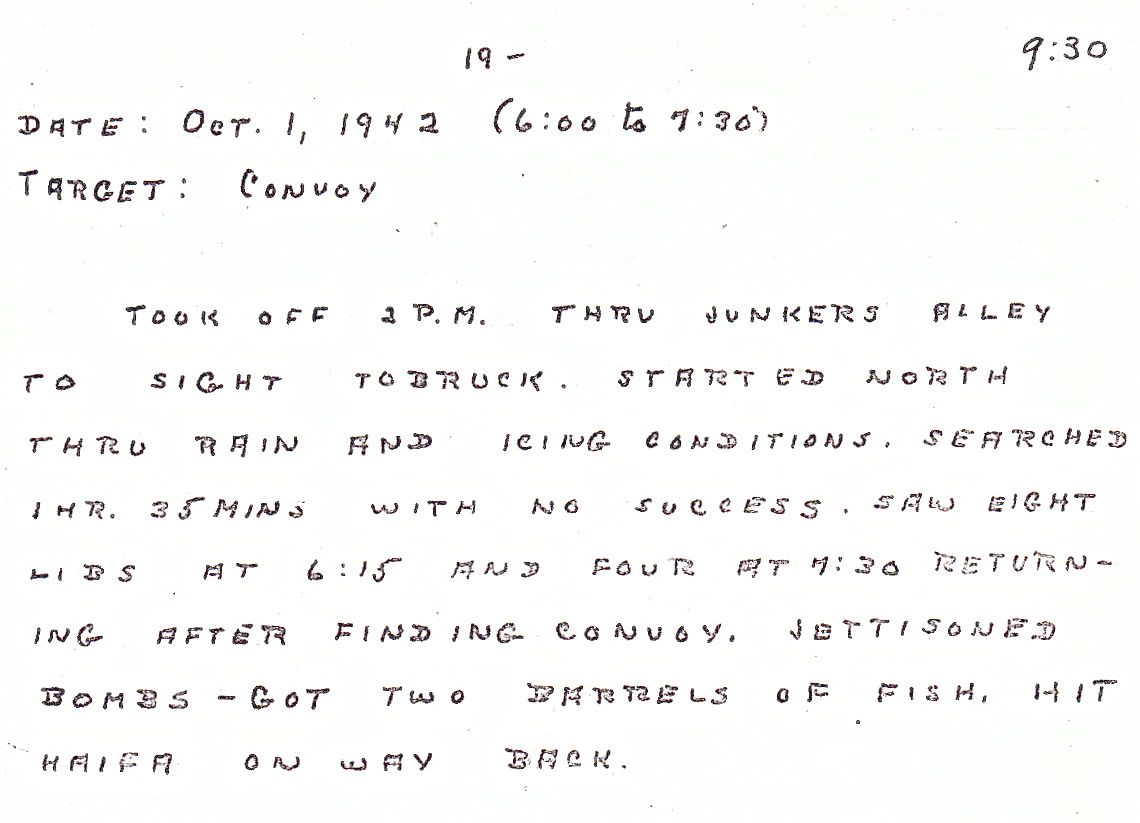 19 - 9:30
DATE: OCT. 1, 1942 (6:00 to 7:30)
TARGET: CONVOY
TOOK OFF 2 P.M. THRU JUNKERS ALLEY
TO SIGHT TOBRUCK. STARTED NORTH
THRU RAIN AND ICING CONDITIONS. SEARCHED
1 HR. 35 MINS WITH NO SUCCESS. SAW EIGHT
LIBS AT 6:15 AND FOUR AT 7:30 RETURN-
ING AFTER FINDING CONVOY. JETTISONED
BOMBS - GOT TWO BARRELS OF FISH. HIT
HAIFA ON WAY BACK.